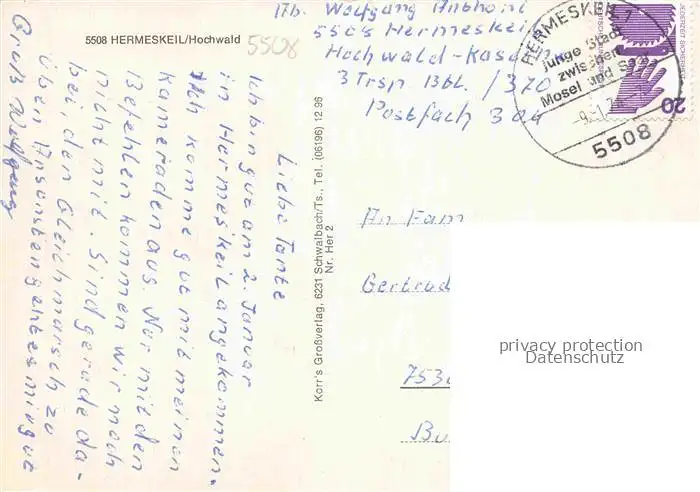 5508 HERMESKEIL/Hochwald
5508
Liebe Tante
Ich bin gut am 2. Januar
in Hermeskeil angekommen.
Ich komme gut mit meinen
Kameraden aus. Nur mit den
Befehlen kommen wir noch
nicht mit. Sind gerade da-
bei, den Gleichmarsch zu
üben. Ansonsten geht es mir gut
Gruß Wolfgang
Korr's Großverlag, 6231 Schwalbach/Ts., Tel. (06196) 12 96
Nr. Her 2
Ab. Wolfgang Anthoni
5508 Hermeskeil
Hochwald-Kasern
3 Trsp Btl. /370
Postfach 304
HERMESKEIL
Junge Stadt
zwischen
Mosel und Saar
5508
JEDERZEIT SICHERHEIT
20
An Fam
Gertrud
753
Bu
privacy protection
Datenschutz